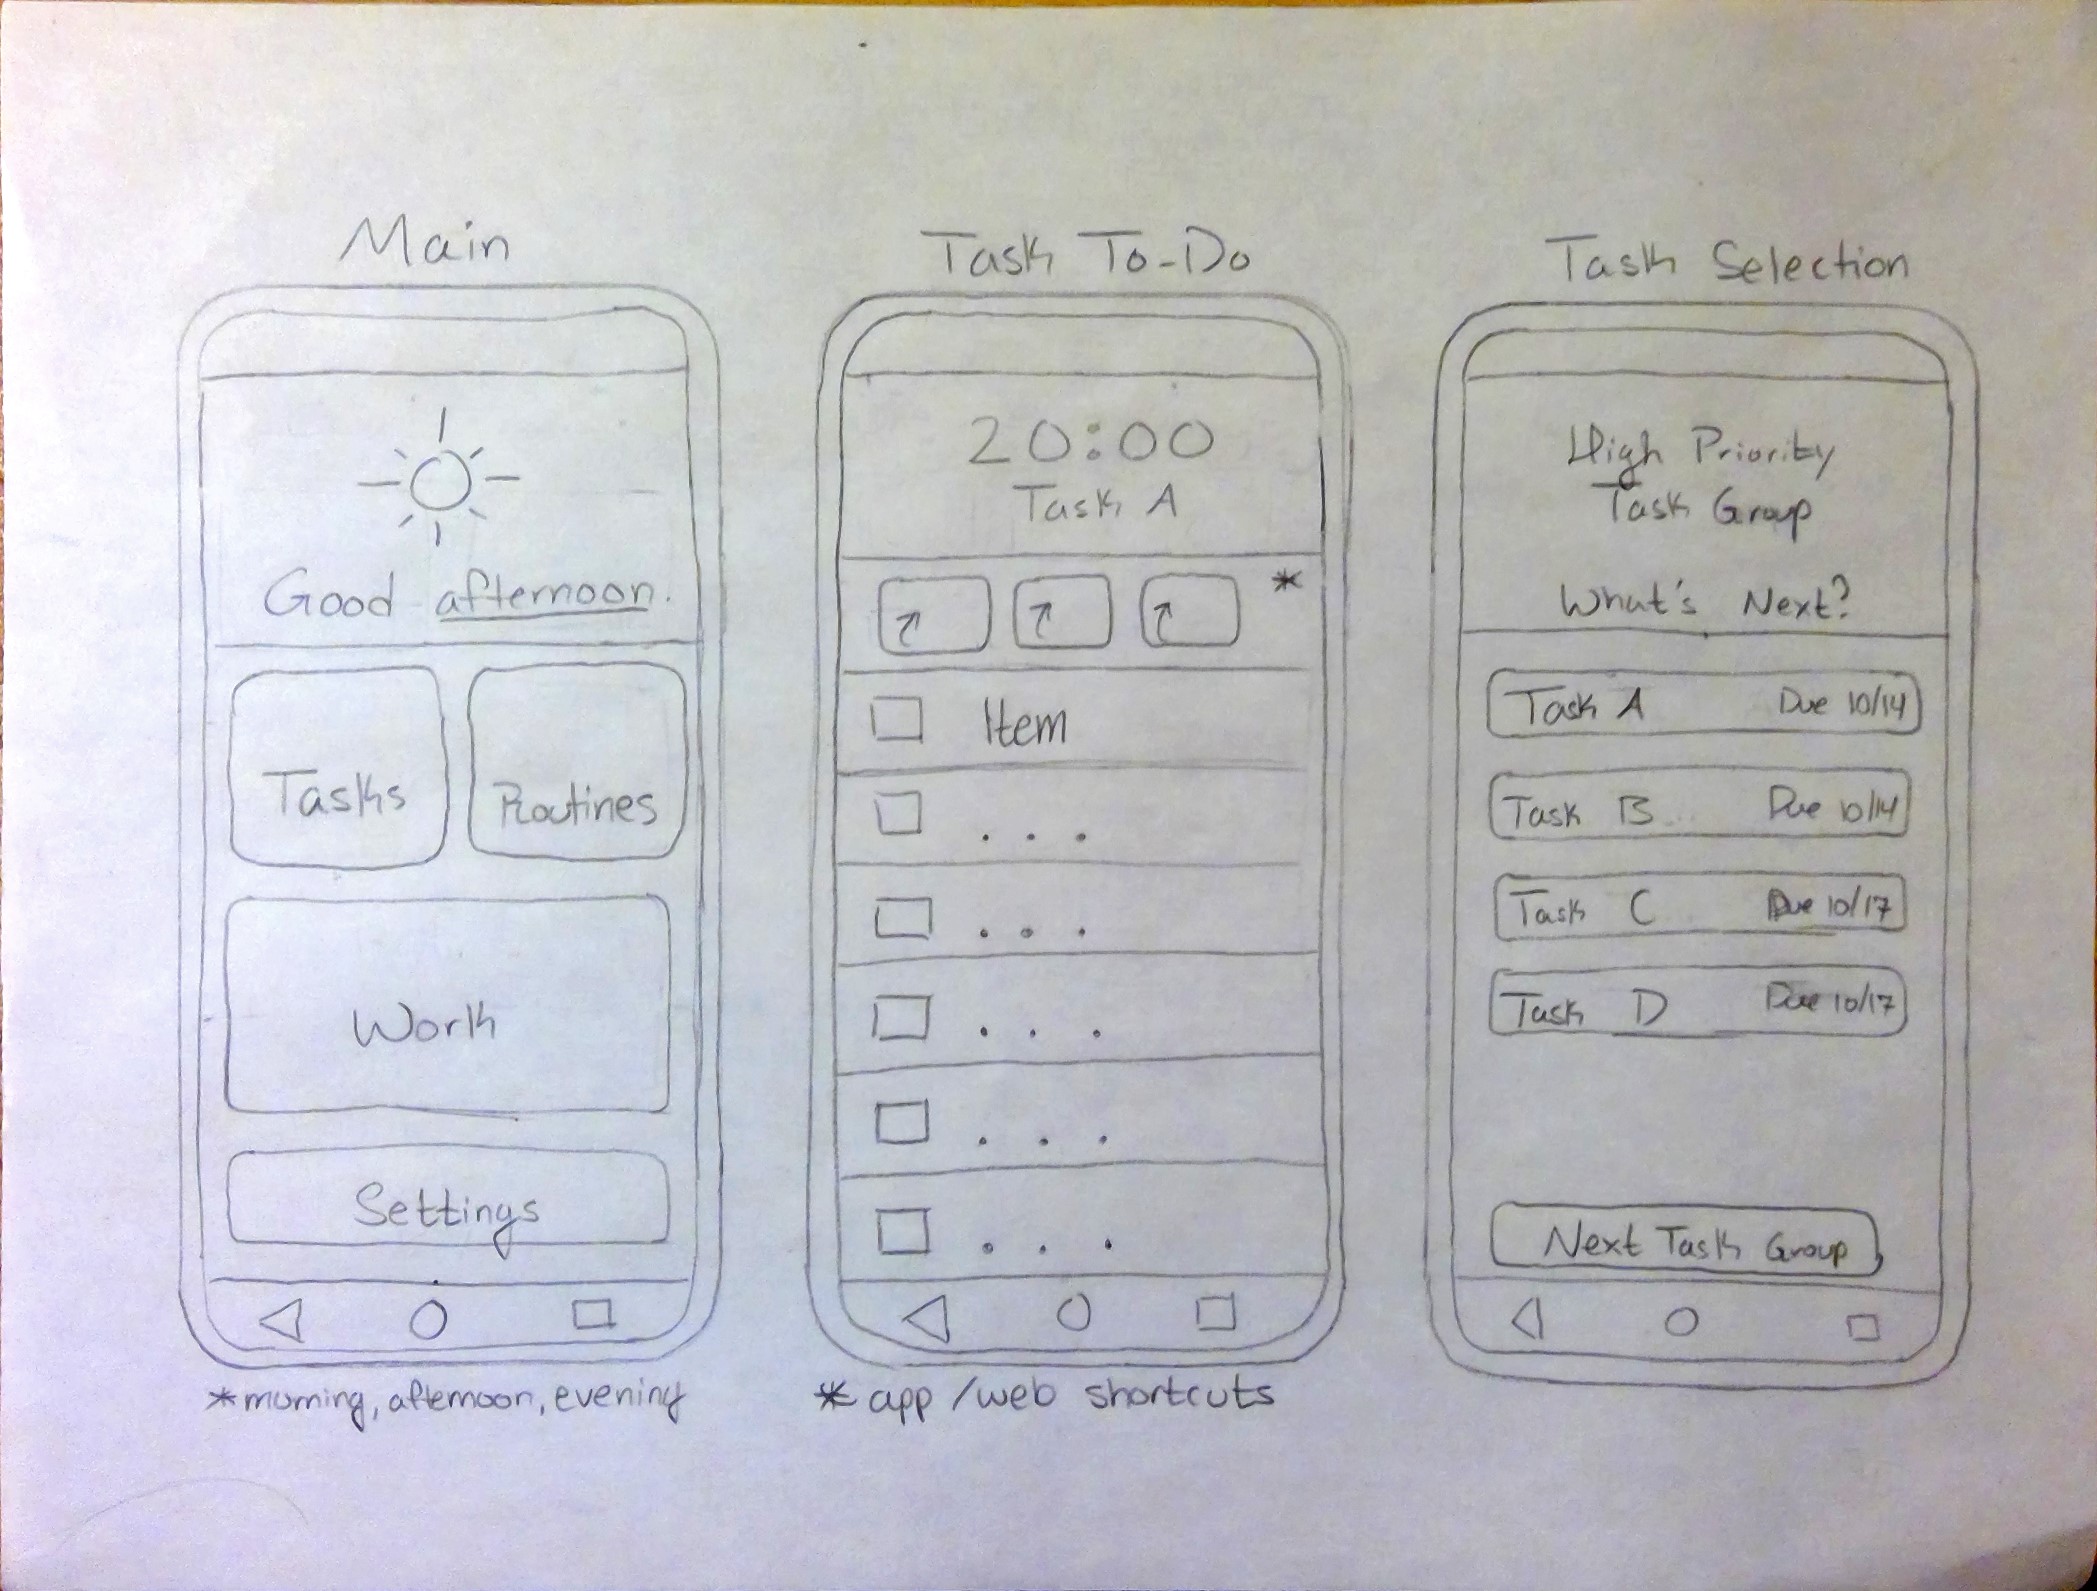 Main
Good afternoon.
Tasks
Routines
Work
Settings
*morning, afternoon, evening
Task To-Do
20:00
Task A
*
Item
. . .
. . .
. . .
. . .
. . .
* app/web shortcuts
Task Selection
High Priority
Task Group
What's Next?
Task A Due 10/14
Task B Due 10/14
Task C Due 10/17
Task D Due 10/17
Next Task Group